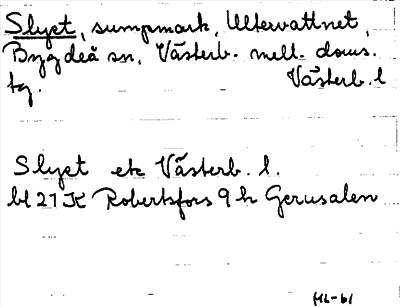 Slyet, sumpmark, Ultervattnet,
Bygdeå sn, Västerb. mell. doms.
tg. Västerb. l
Slyet ek Västerb. l.
bl 21 K Robertsfors 9 h Gerusalem
HL-61